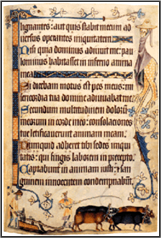 lignantes: aut quis stabit mecum ad
versus operantes iniquitatem
Nisi quia dominus adiuvit me: pau
lominus habitasset in inferno anima
mea
Si dicebam motus est pes meus: mi
sericordia tua domine adiuvabat me
Secundum multitudinem dolorum
meorum in corde meo: consolationes
tue letificaverunt animam meam
Numquid adheret tibi sedes iniqui
tatis: qui fingis laborem in precepto
Captabunt in animam iusti: et san
guinem innocentem condempnabunt